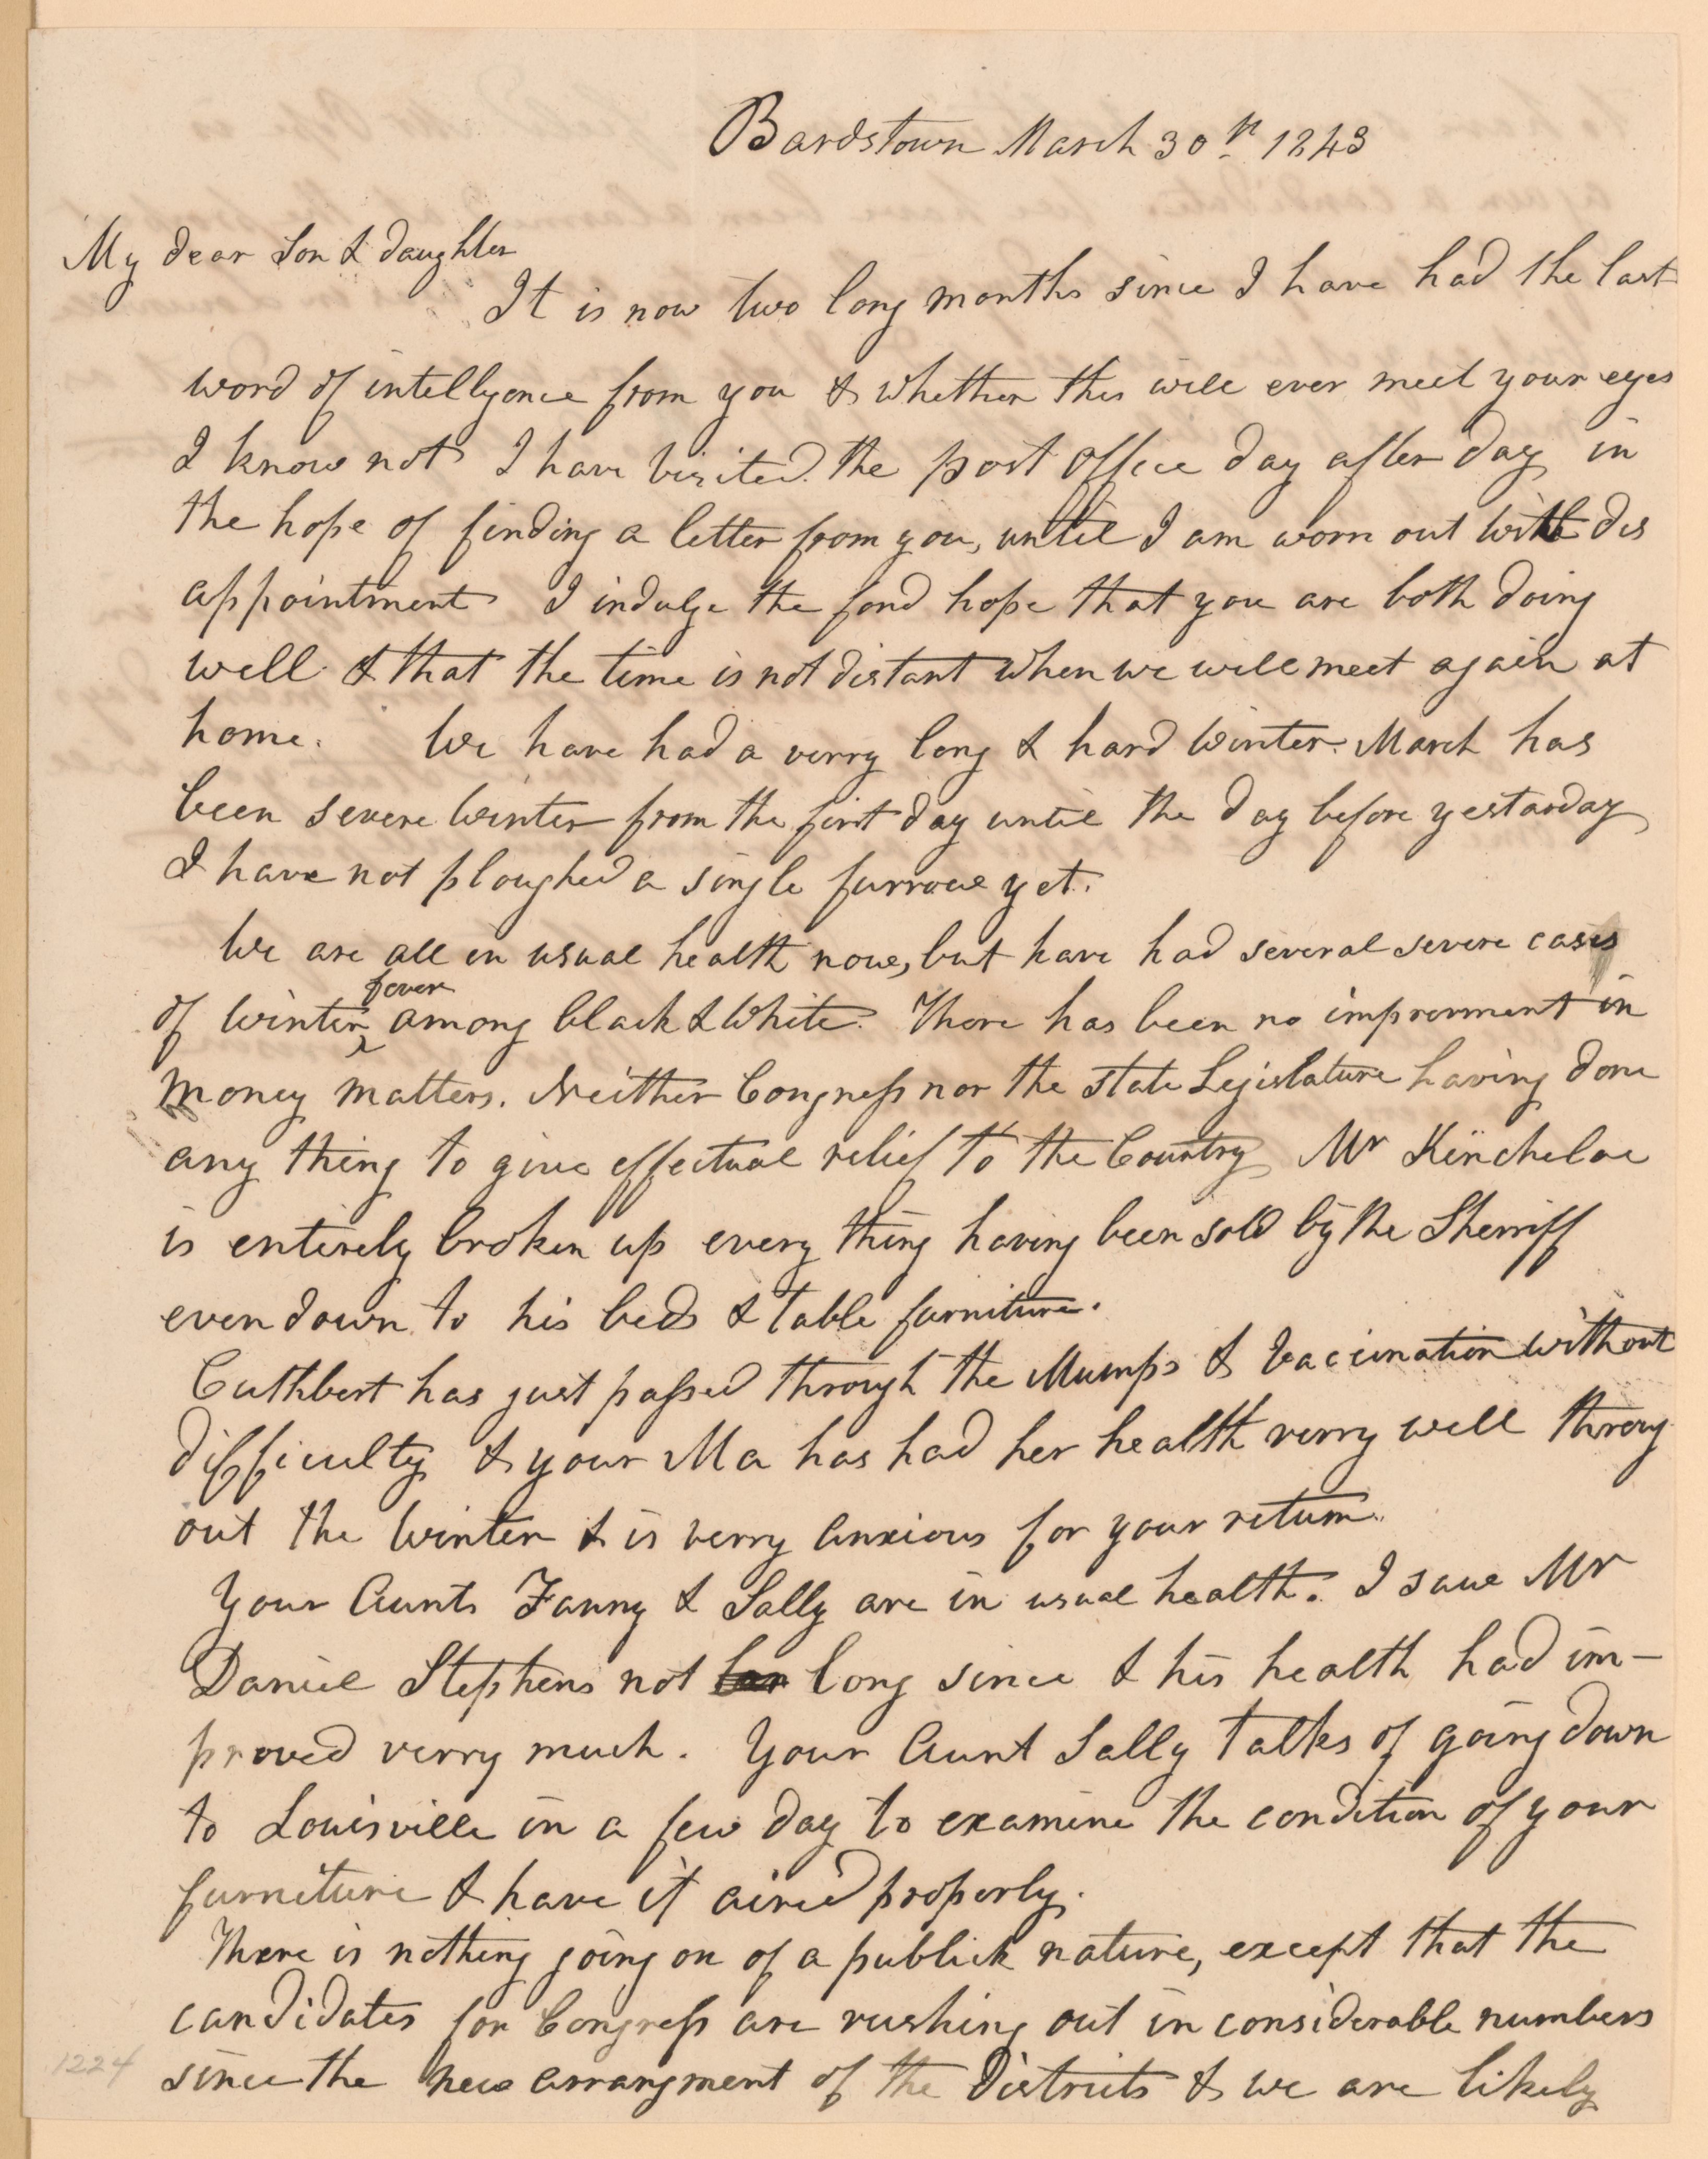 Bardstown March 30th 1843
My dear Son & daughter
It is now two long months since I have had the last
word of intellgence from you & whether this will ever meet your eyes
I know not I have visited the post office day after day in
the hope of finding a letter from you, until I am worn out with dis
appointment I indulge the fond hope that you are both doing
well & that the time is not distant when we will meet again at
home. We have had a verry long & hard Winter. March has
been severe Winter from the first day until the day before yestarday
I have not ploughed a single furrow yet.
We are all in usual health now, but have had several severe cases
fever
of Winter ^ among black & White. There has been no improvment in
money matters. Neither Congress nor the State Legislature having done
any thing to give effectual relief to the Country Mr Kincheloe
is entirely broken up every thing having been sold by the Sherriff
even down to his beds & table furniture.
Cuthbert has just passed through the Mumps & Vaccination without
difficulty & your Ma has had her health verry well throug
out the Winter & is verry anxious for your return.
Your Aunts Fanny & Sally are in usual health. I saw Mr
Daniel Stephens not long since & his health had im-
proved verry much. Your Aunt Sally talks of going down
to Louisville in a few day to examine the condition of your
furniture & have it aired properly.
There is nothing going on of a publick nature, except that the
candidates for Congress are rushing out in considerable numbers
since the new arrangment of the Districts & we are likely
1224